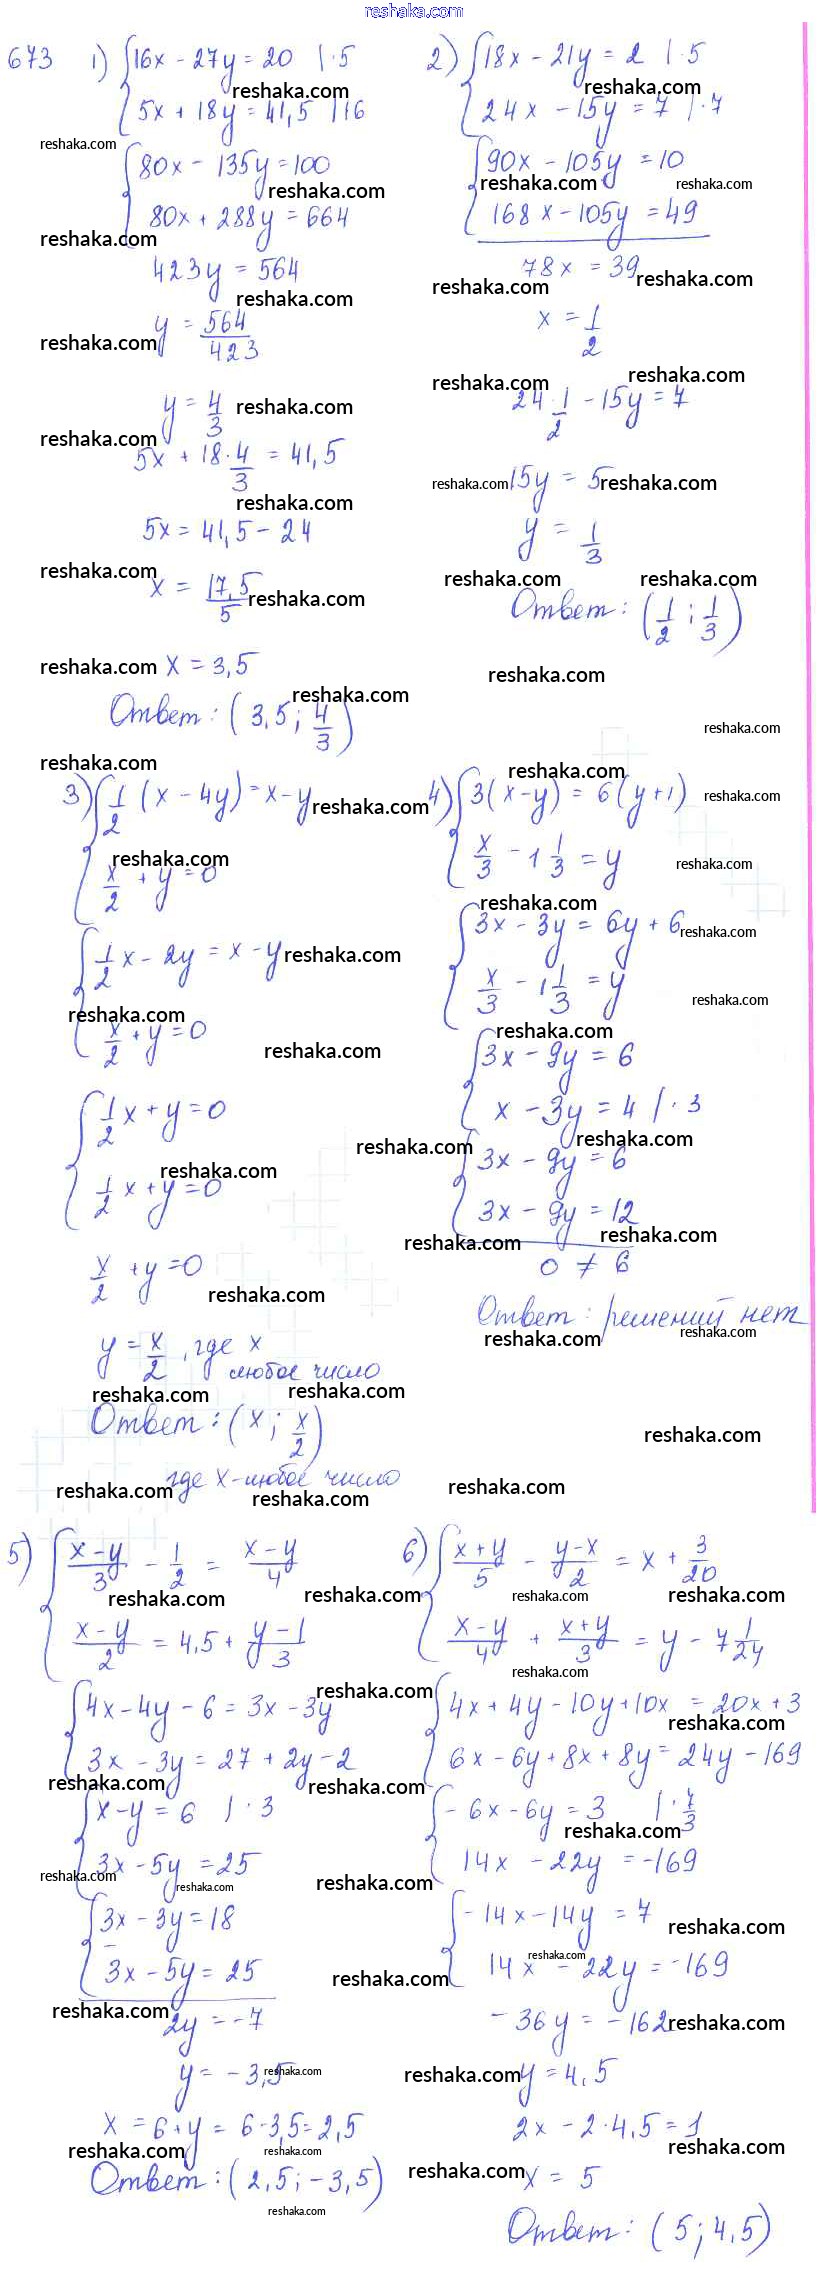 reshaka.com
673 1) {16x - 27y = 20 | ·5
5x + 18y = 41,5 | 16
{80x - 135y = 100
80x + 288y = 664
423y = 564
y = 564/423
y = 4/3
5x + 18 · 4/3 = 41,5
5x = 41,5 - 24
x = 17,5/5
x = 3,5
Ответ: (3,5; 4/3)
2) {18x - 21y = 2 | ·5
24x - 15y = 7 | ·7
{90x - 105y = 10
168x - 105y = 49
78x = 39
x = 1/2
24 · 1/2 - 15y = 7
15y = 5
y = 1/3
Ответ: (1/2; 1/3)
3) {1/2 (x - 4y) = x - y
x/2 + y = 0
{1/2 x - 2y = x - y
x/2 + y = 0
{1/2 x + y = 0
1/2 x + y = 0
x/2 + y = 0
y = x/2, где x
любое число
Ответ: (x; x/2)
где x - любое число
4) {3(x - y) = 6(y + 1)
x/3 - 1 1/3 = y
{3x - 3y = 6y + 6
x/3 - 1 1/3 = y
{3x - 9y = 6
x - 3y = 4 | · 3
{3x - 9y = 6
3x - 9y = 12
0 ≠ 6
Ответ: решений нет
5) {(x - y)/3 - 1/2 = (x - y)/4
(x - y)/2 = 4,5 + (y - 1)/3
{4x - 4y - 6 = 3x - 3y
3x - 3y = 27 + 2y - 2
{x - y = 6 | · 3
3x - 5y = 25
{3x - 3y = 18
-
3x - 5y = 25
2y = -7
y = -3,5
x = 6 + y = 6 - 3,5 = 2,5
Ответ: (2,5; -3,5)
6) {(x + y)/5 - (y - x)/2 = x + 3/20
(x - y)/4 + (x + y)/3 = y - 7 1/24
{4x + 4y - 10y + 10x = 20x + 3
6x - 6y + 8x + 8y = 24y - 169
{-6x - 6y = 3 | · 7/3
14x - 22y = -169
{-14x - 14y = 7
14x - 22y = -169
-36y = -162
y = 4,5
2x - 2 · 4,5 = 1
x = 5
Ответ: (5; 4,5)